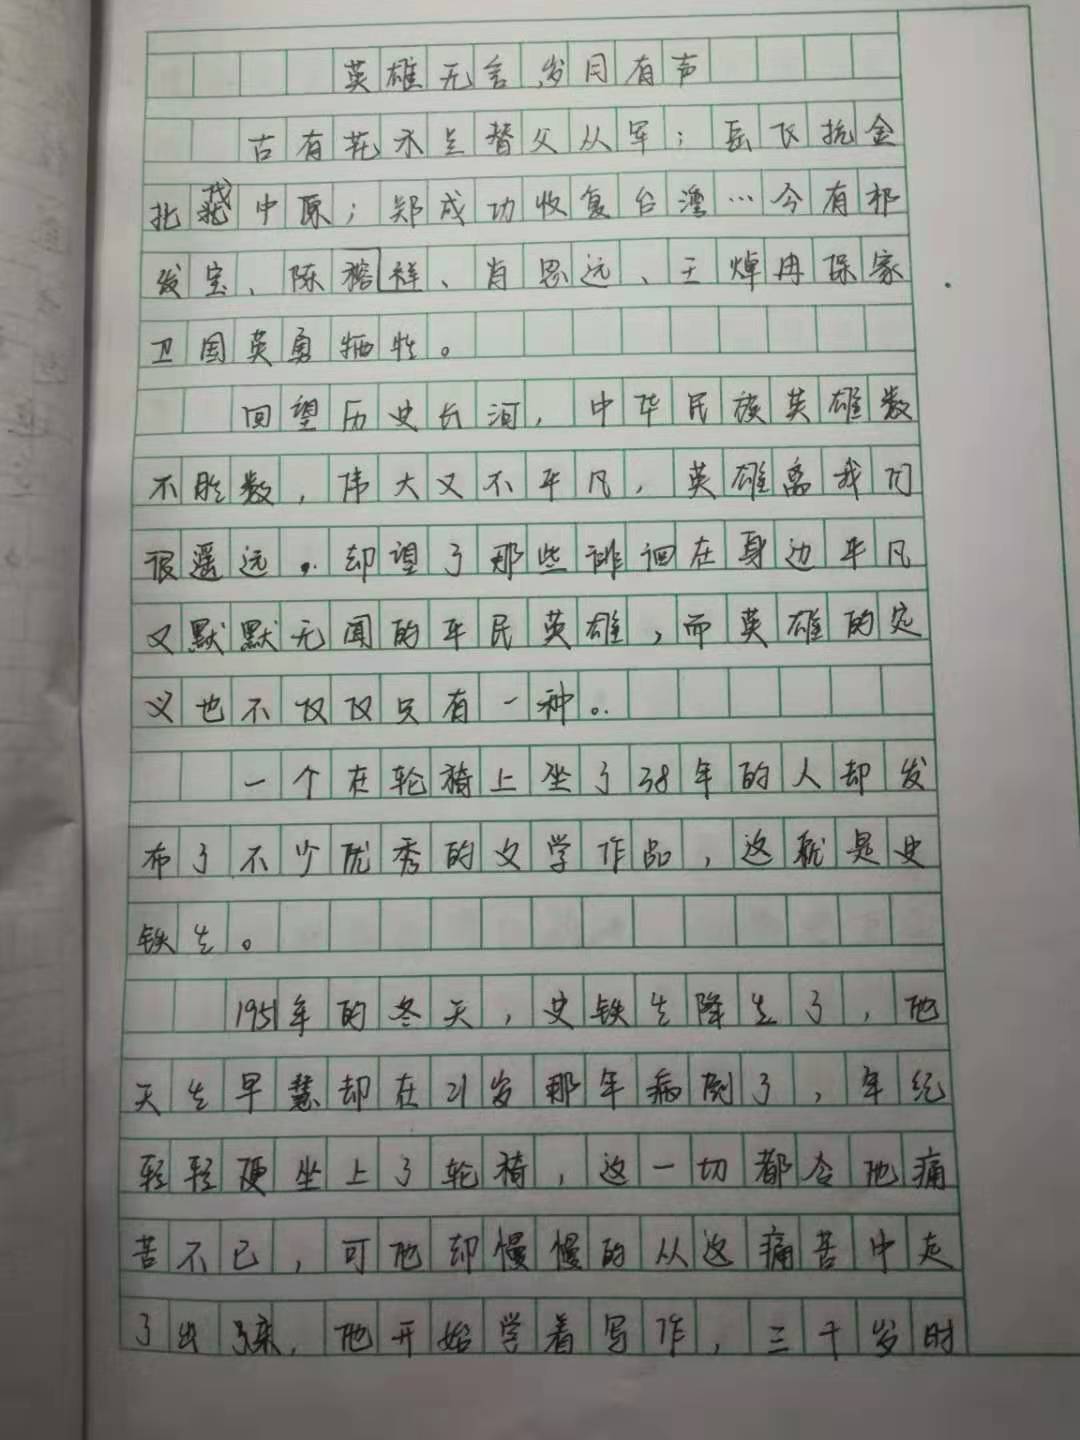 英雄无言,岁月有声
古有花木兰替父从军；岳飞抗金
北伐中原；郑成功收复台湾…今有祁
发宝、陈榕祥、肖思远、王焯冉保家
卫国英勇牺牲。
回望历史长河，中华民族英雄数
不胜数，伟大又不平凡，英雄离我们
很遥远．却望了那些徘徊在身边平凡
又默默无闻的平民英雄，而英雄的定
义也不仅仅只有一种。
一个在轮椅上坐了38年的人却发
布了不少优秀的文学作品，这就是史
铁生。
1951年的冬天，史铁生降生了，他
天生早慧却在21岁那年病倒了，年纪
轻轻便坐上了轮椅，这一切都令他痛
苦不已，可他却慢慢的从这痛苦中走
了出来，他开始学着写作，三十岁时